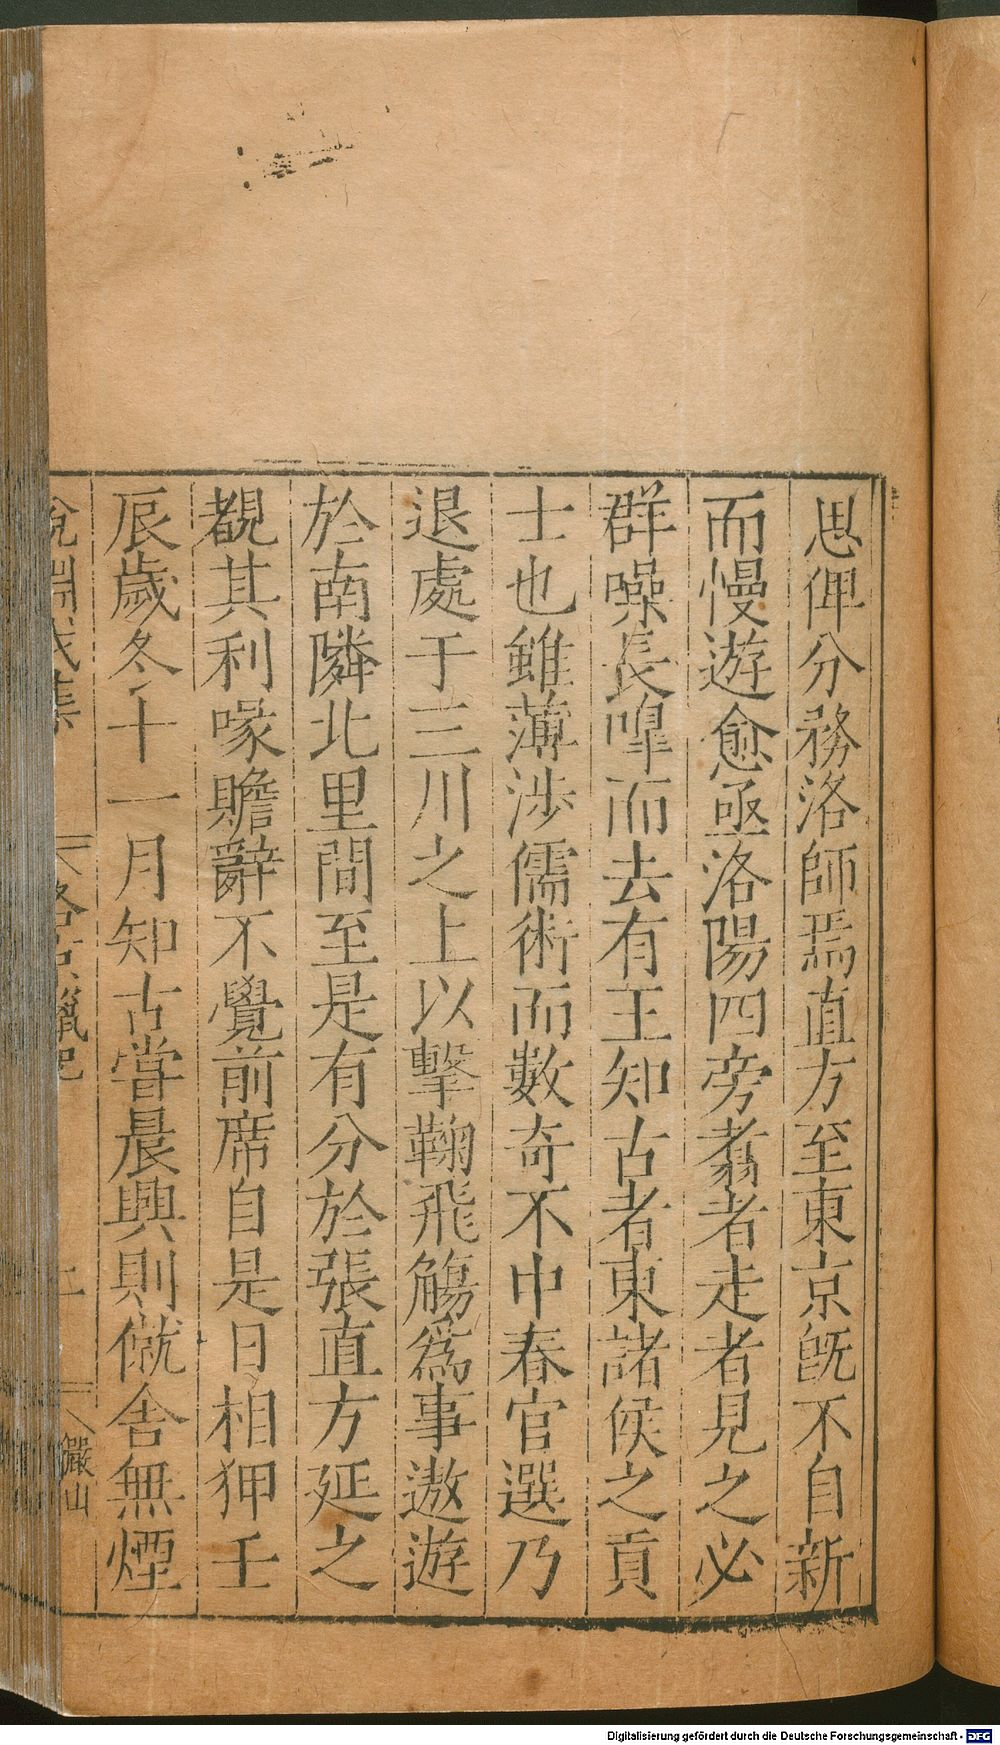 思俾分務洛師焉直方至東京旣不自新
而慢遊愈亟洛陽四旁翥者走者見之必
群噪長嘷而去有王知古者東諸侯之貢
士也雖薄涉儒術而數奇不中春官選乃
退處于三川之上以擊鞠飛觴爲事遨遊
於南隣北里間至是有分於張直方延之
覩其利喙贍辭不覺前席自是日相狎壬
辰歲冬十一月知古甞晨興則僦舍無煙
說淵戊集
洛京獵記
二
儼山
Digitalisierung gefördert durch die Deutsche Forschungsgemeinschaft - DFG